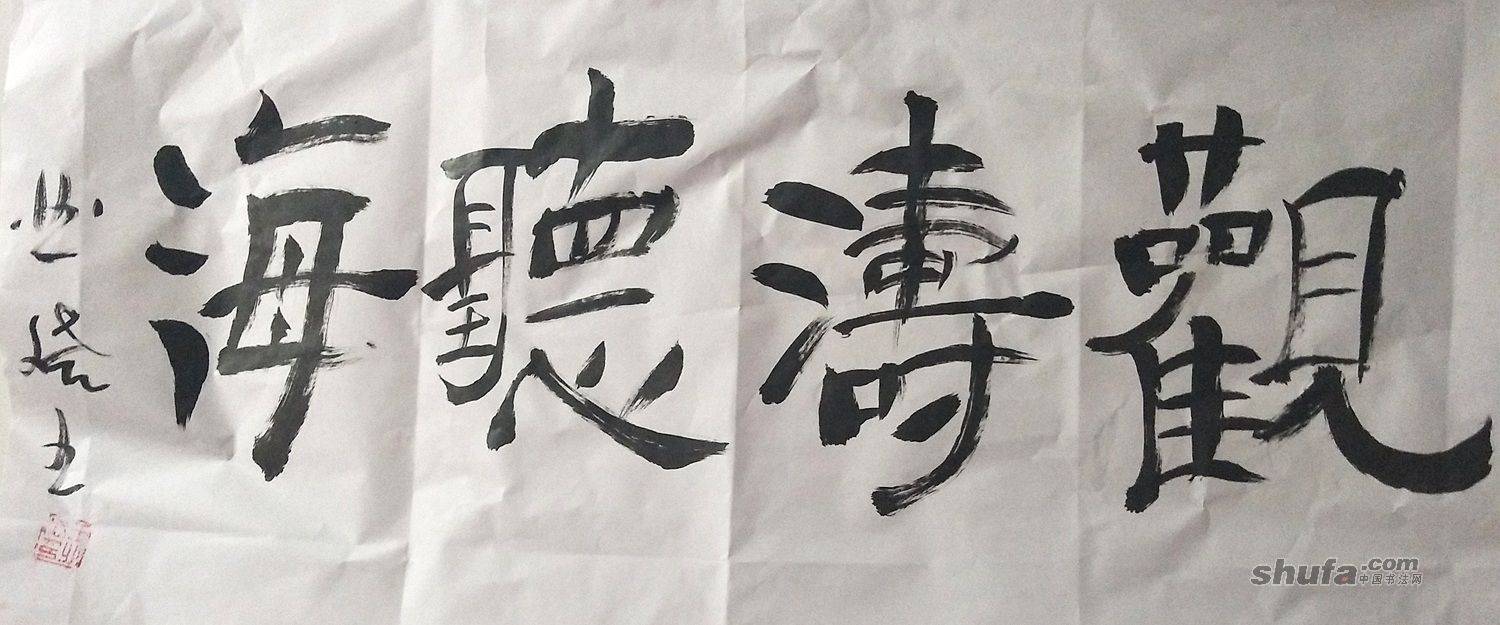 觀濤聽海
shufa.com
中国书法网